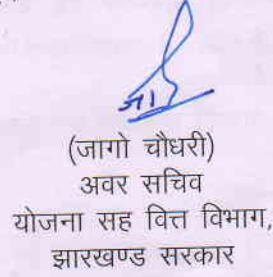 (जागो चौधरी)
अवर सचिव
योजना सह वित्त विभाग,
झारखण्ड सरकार